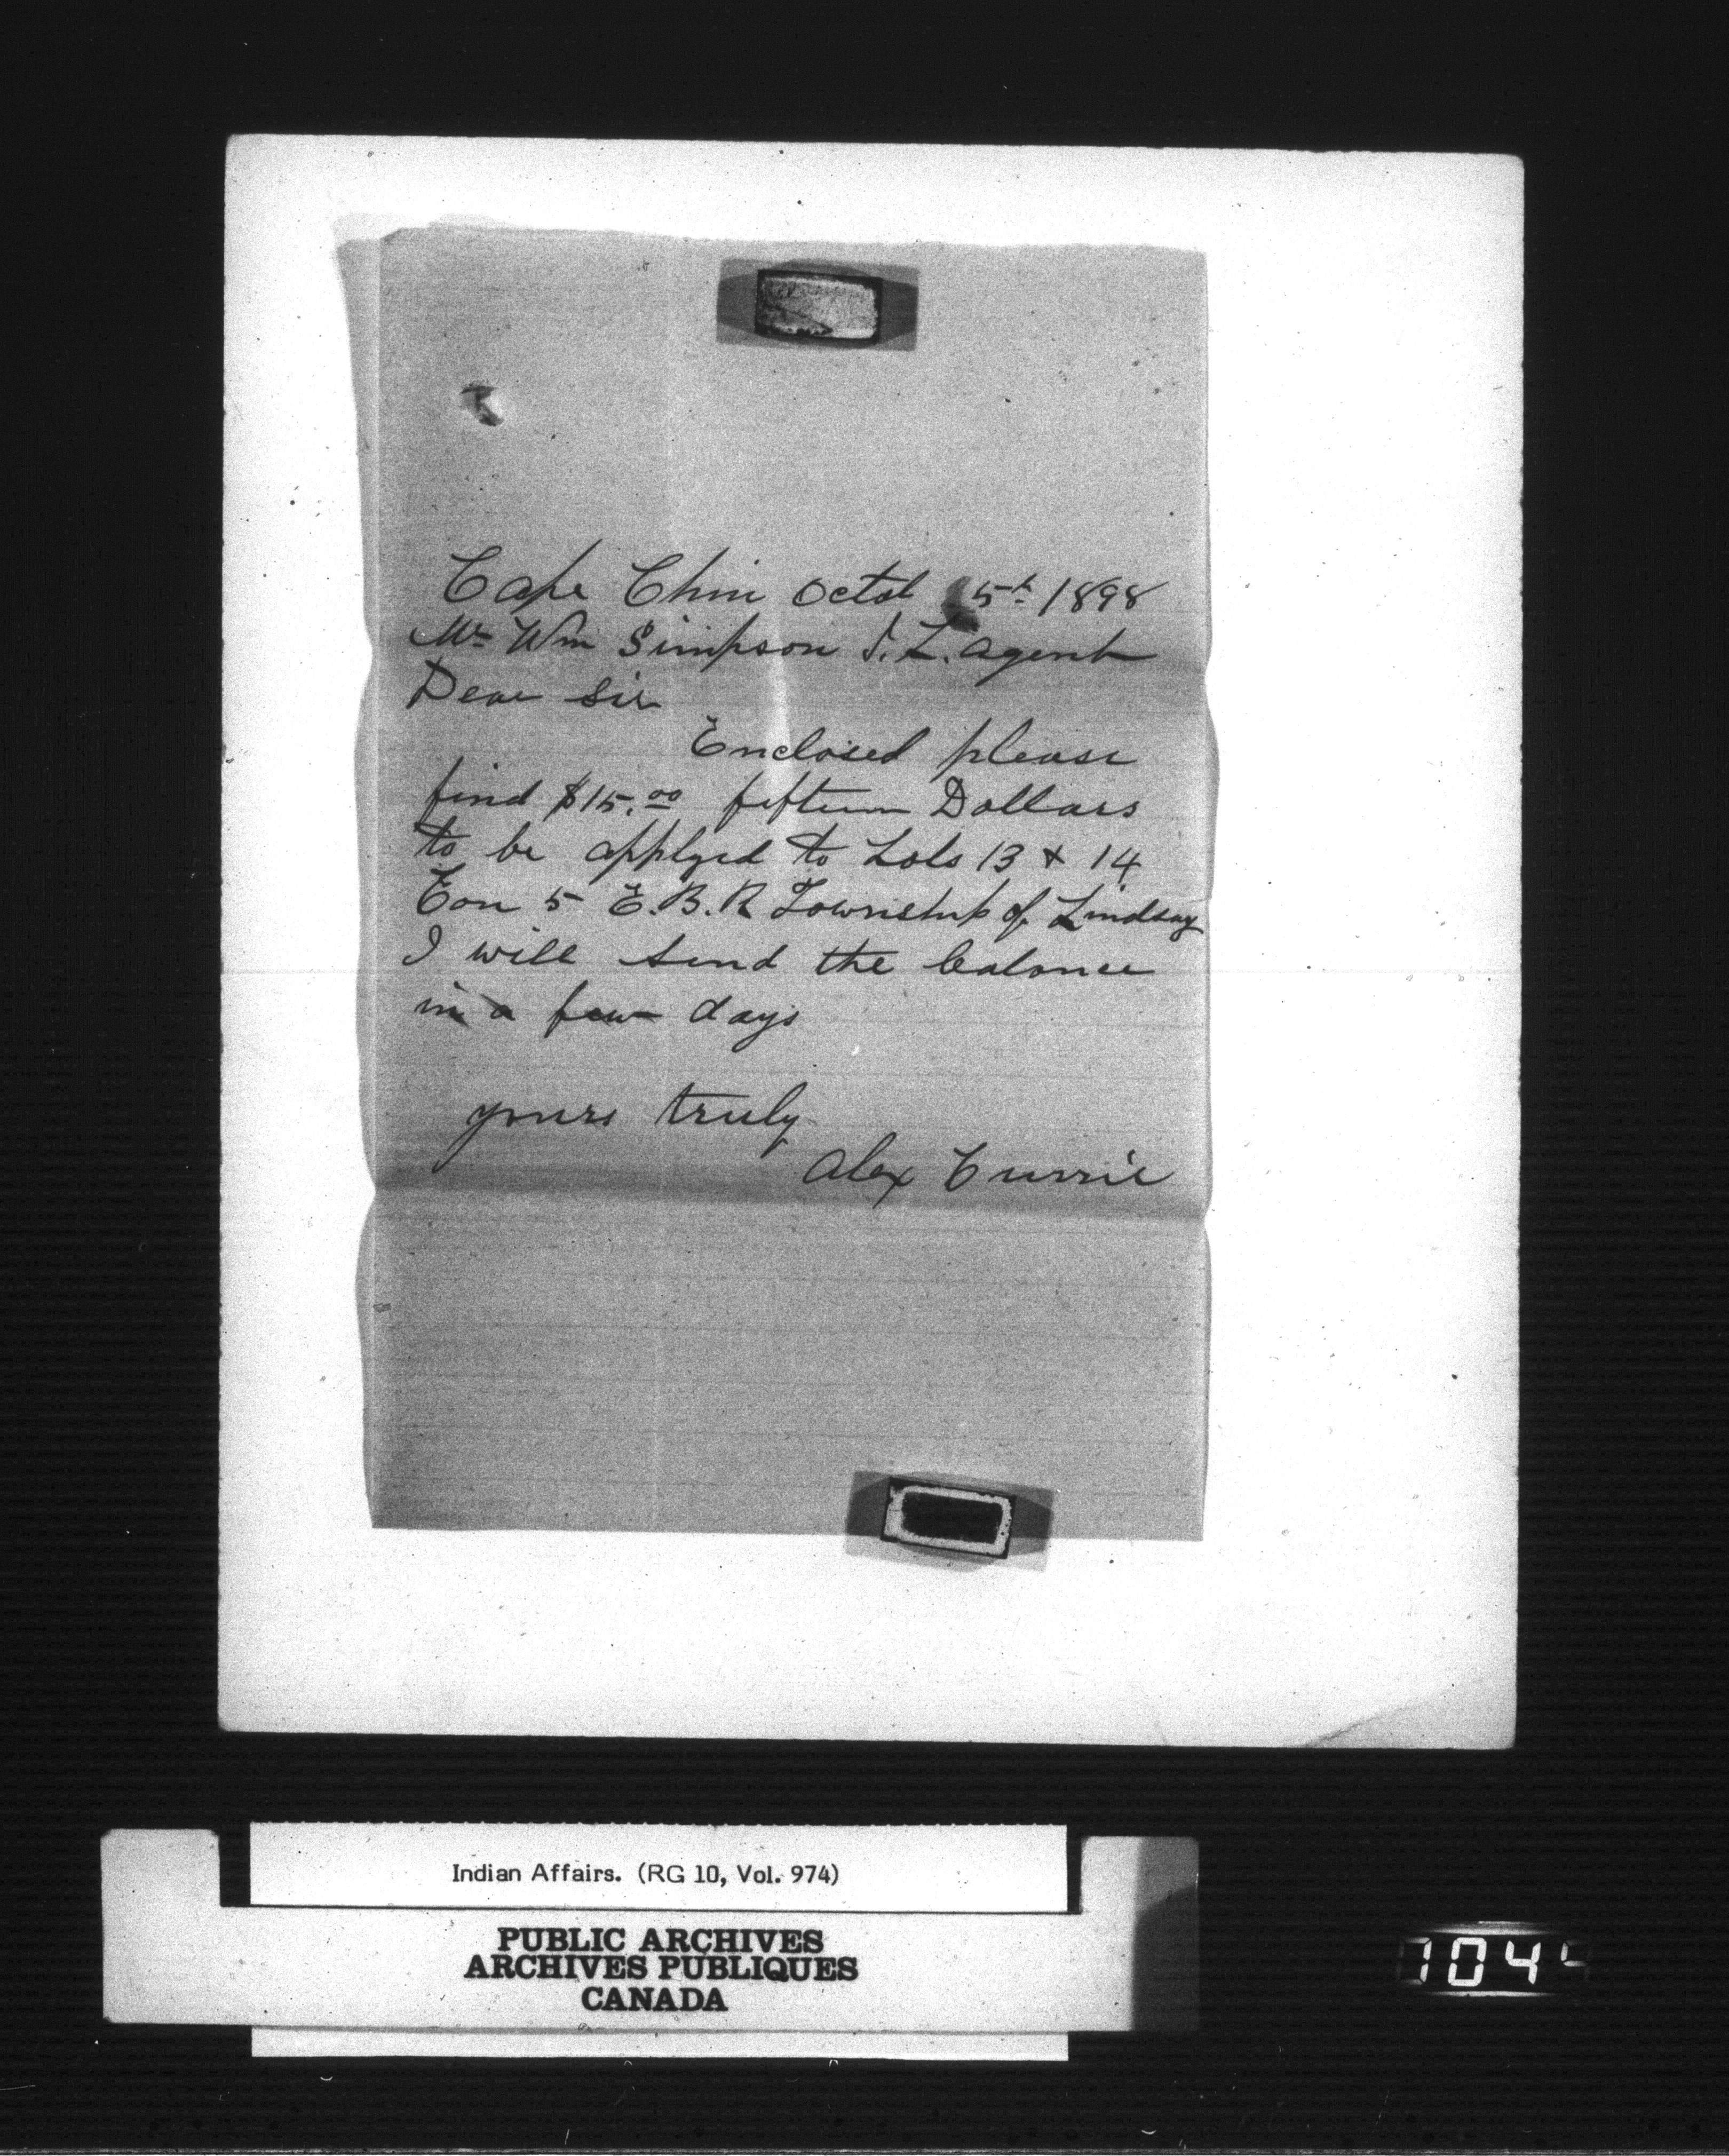 Cape Chin Octob 5th 1898
Mr Wm Simpson I. L. Agent
Dear Sir
Enclosed please
find $15.00 fifteen Dollars
to be applyed to Lots 13 & 14
Con 5 E. B. R Township of Lindsay
I will send the balance
in a few days
yours truly
Alex Currie
Indian Affairs. (RG 10, Vol. 974)
PUBLIC ARCHIVES
ARCHIVES PUBLIQUES
CANADA